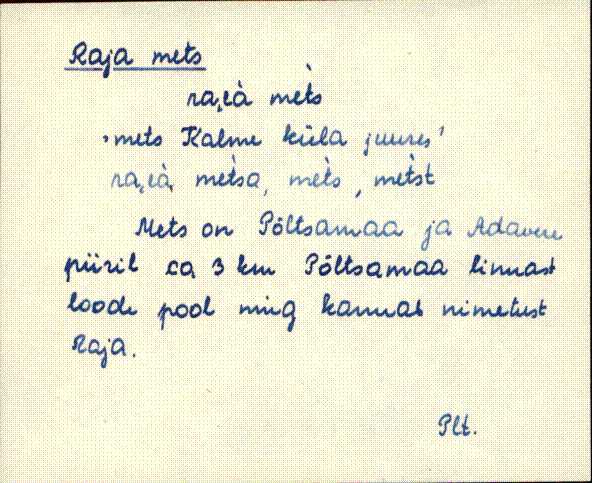 Raja mets
ra͔i̯à mèts
'mets Kalme küla juures'
ra͔i̯à mètsa, mèts, mètst
Mets on Põltsamaa ja Adavere
piiril ca 3 km Põltsamaa linnast
loode pool ning kannab nimetust
Raja.
Plt.